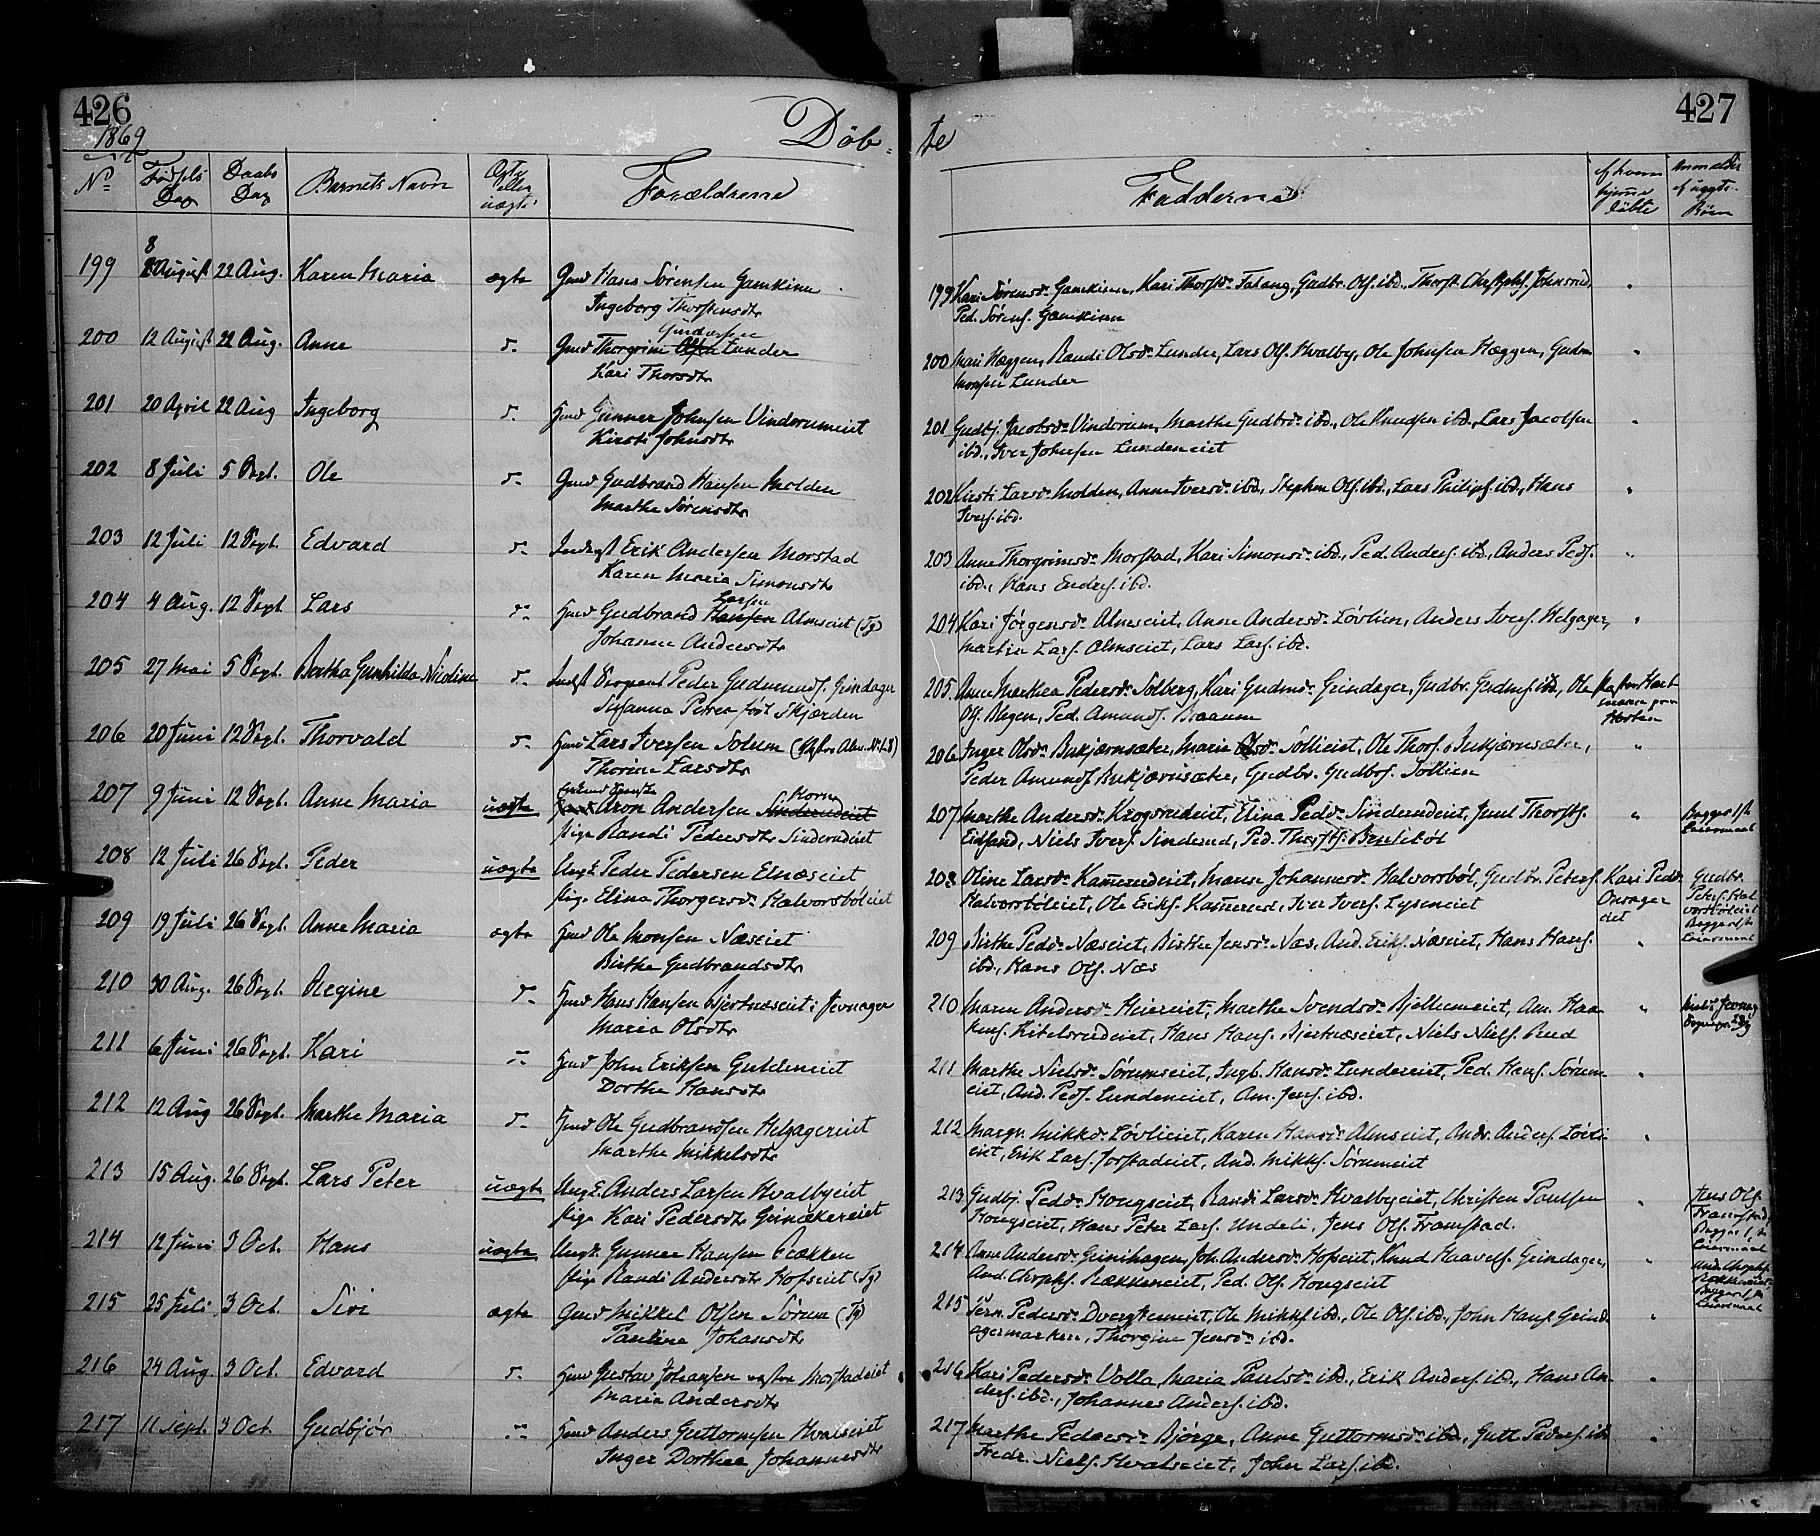 426
1869
Døb-
No
Fødsels Dag
Daabs Dag
Barnets Navn
Ægte eller uægte
Forældrene
199 8 August 22 Aug. Karen Maria ægte Gmd Hans Sørensen Gamkinn
Ingeborg Thorstensdtr
200 12 August 22 Aug. Anne d- Gmd Thorgrim Gudmsen Lunder
Kari Thorsdtr
201 20 April 22 Aug Ingeborg d- Hmd Gunner Johnsen Vindorumeiet
Kirsti Johnsdtr
202 8 Juli 5 Sept. Ole d- Gmd Gudbrand Hansen Molden
Marthe Sørensdtr
203 12 Juli 12 Sept. Edvard d- Inderst Erik Andersen Morstad
Karen Maria Simonsdtr
204 4 Aug. 12 Sept. Lars d- Hmd Gudbrand Larsen Almseiet (Jg)
Johanne Andersdtr
205 27 Mai 5 Sept. Bertha Gunhilda Nicoline d- Indst Sergeant Peder Gudmunds. Grindager
Susanna Petrea født Skjærden
206 20 Juni 12 Sept. Thorvald d- Hmd Lars Iversen Solum
Thorine Larsdtr
207 9 Juni 12 Sept. Anne Maria uægte Aron Andersen Horn
Pige Randi Pedersdtr Sinderudeiet
208 12 Juli 26 Sept. Peder uægte Ungk. Peder Pedersen Elnæseiet
Pige Elina Thorgersd. Halvorsböleiet
209 19 Juli 26 Sept. Anne Maria ægte Hmd Ole Monsen Næseiet
Birthe Gudbrandsdtr
210 30 Aug. 26 Sept. Regine d- Hmd Hans Hansen Bjertnæseiet i Jevnager
Maria Olsdtr
211 6 Juni 26 Sept. Kari d- Hmd John Eriksen Guldeneiet
Dorthe Hansdtr
212 12 Aug 26 Sept. Marthe Maria d- Hmd Ole Gudbrandsen Helgagereiet
Marthe Mikkelsdtr
213 15 Aug. 26 Sept. Lars Peter uægte Ungk. Anders Larsen Hvalbyeiet
Pige Kari Pedersdtr Grinækereiet
214 12 Juni 3 Oct. Hans uægte Ungk. Gunner Hansen Rækken
Pige Randi Andersdtr Hofseiet (Jg)
215 25 Juli 3 Oct. Siri ægte Gmd Mikkel Olsen Sørum (Jg)
Pauline Johansdtr
216 24 Aug. 3 Oct. Edvard d- Hmd Gustav Johansen vestre Morstadeiet
Maria Andersdtr
217 11 Sept. 3 Oct. Gudbjør d- Hmd Anders Guttormsen Hvalseiet
Inger Dorthea Johannesdtr
427
te
Fadderne
af hvem hjemme døbte
Anmelder af uægte Børn
199 Kari Sørensd. Gamkinn, Kari Thorstd. Fatang, Gudbr. Ols. ibd., Thorst. Christophs. Johnsrud,
Ped. Sørens. Gamkinn
200 Mari Hæggen, Randi Olsd. Lunder, Lars Ols. Hvalby, Ole Johnsen Hæggen, Gudm.
Monsen Lunder
201 Gudbj. Jacobsd. Vindorum, Marthe Gudbrd. ibd., Ole Knudsen ibd., Lars Jacobsen
ibd., Iver Johnsen Lundeneiet
202 Kirsti Larsd. Molden, Anne Iversd. ibd., Stephen Ols. ibd., Lars Philips. ibd., Hans
Ivers. ibd.
203 Anne Thorgrimsd. Morstad, Kari Simonsd. ibd., Ped. Anders. ibd., Anders Peds.
ibd., Hans Enders. ibd.
204 Kari Jørgensd. Almseiet, Anne Andersd. Løvlien, Anders Ivers. Helgager,
Martin Lars. Almseiet, Lars Lars. ibd.
205. Anne Marthea Pedersd. Solberg, Kari Gudmd. Grindager, Gudbr. Gudms. ibd., Ole
Ols. Ped. Amunds. Braaum
206 Inger Olsd. Bukjærnsæter, Marie Olsd. Sollieiet, Ole Thors. Bukjærnsæter,
Peder Amunds. Bukjærnsæter, Gudbr. Gudbrs. Sollien
207 Marthe Andersd. Krogsrudeiet, Elina Pedd. Sinderudeiet, Juul Thorsts.
Eidsand, Niels Ivers. Sinderud, Ped. Thorsts. Benteböl
208 Oline Larsd. Kammerudeiet, Maren Johannesd. Halvorsböl, Gudbr. Peters. Kari Pedd.
Halvorsböleiet, Ole Eriks. Kammerud, Iver Ivers. Lyseneiet Onsager
eiet
Gudbr.
Peters. Hal
vorsböleiet
209 Birthe Pedd. Næseiet, Birthe Jensd. Næs, And. Eriks. Næseiet, Hans Hans.
ibd., Hans Ols. Næs
210 Maren Andersd. Heiereiet, Marthe Svendsd. Bjellumeiet, Am. Haa-
kens. Kitelsrudeiet, Hans Hans. Bjertnæseiet, Niels Niels. Rud
211 Marthe Nielsd. Sørumseiet, Ingb. Hansd. Lundeneiet, Ped. Hans. Sørum-
eiet, And. Peds. Lundeneiet, Am. Jens. ibd.
212 Margr. Mikkd. Løvlieiet, Karen Hansd. Almseiet, Andr. Anders. Løvli-
eiet, Erik Lars. Jorstadeiet, And. Mikks. Sørumeiet
213 Gudbj. Pedd. Hougseiet, Randi Larsd. Hvalbyeiet, Christen Paulsen
Hougseiet, Hans Peter Lars. Undeli, Jens Ols. Framstad.
Jens Ols.
Framstad
214 Anne Andersd. Grinihagen, Joh. Andersd. Hofseiet, Knud Haavels. Grindager,
And. Chrophs. Rækkeneiet, Ped. Ols. Hougseiet
And. Chrophs.
Rækkeneiet
215 Bern. Pedersd. Ole Mikks. ibd., Ole Ols. ibd., John Hans. Grind-
agermarken, Thorgine Jensd. ibd.
216 Kari Pedersd. Volla, Maria Paulsd. ibd., Erik Anders. ibd., Hans An-
ders. ibd., Johannes Anders. ibd.
217 Marthe Pedersd. Bjørge, Anne Guttormsd. ibd., Gutt. Peders. ibd.
Fredr. Niels. Hvalseiet, John Lars. ibd.